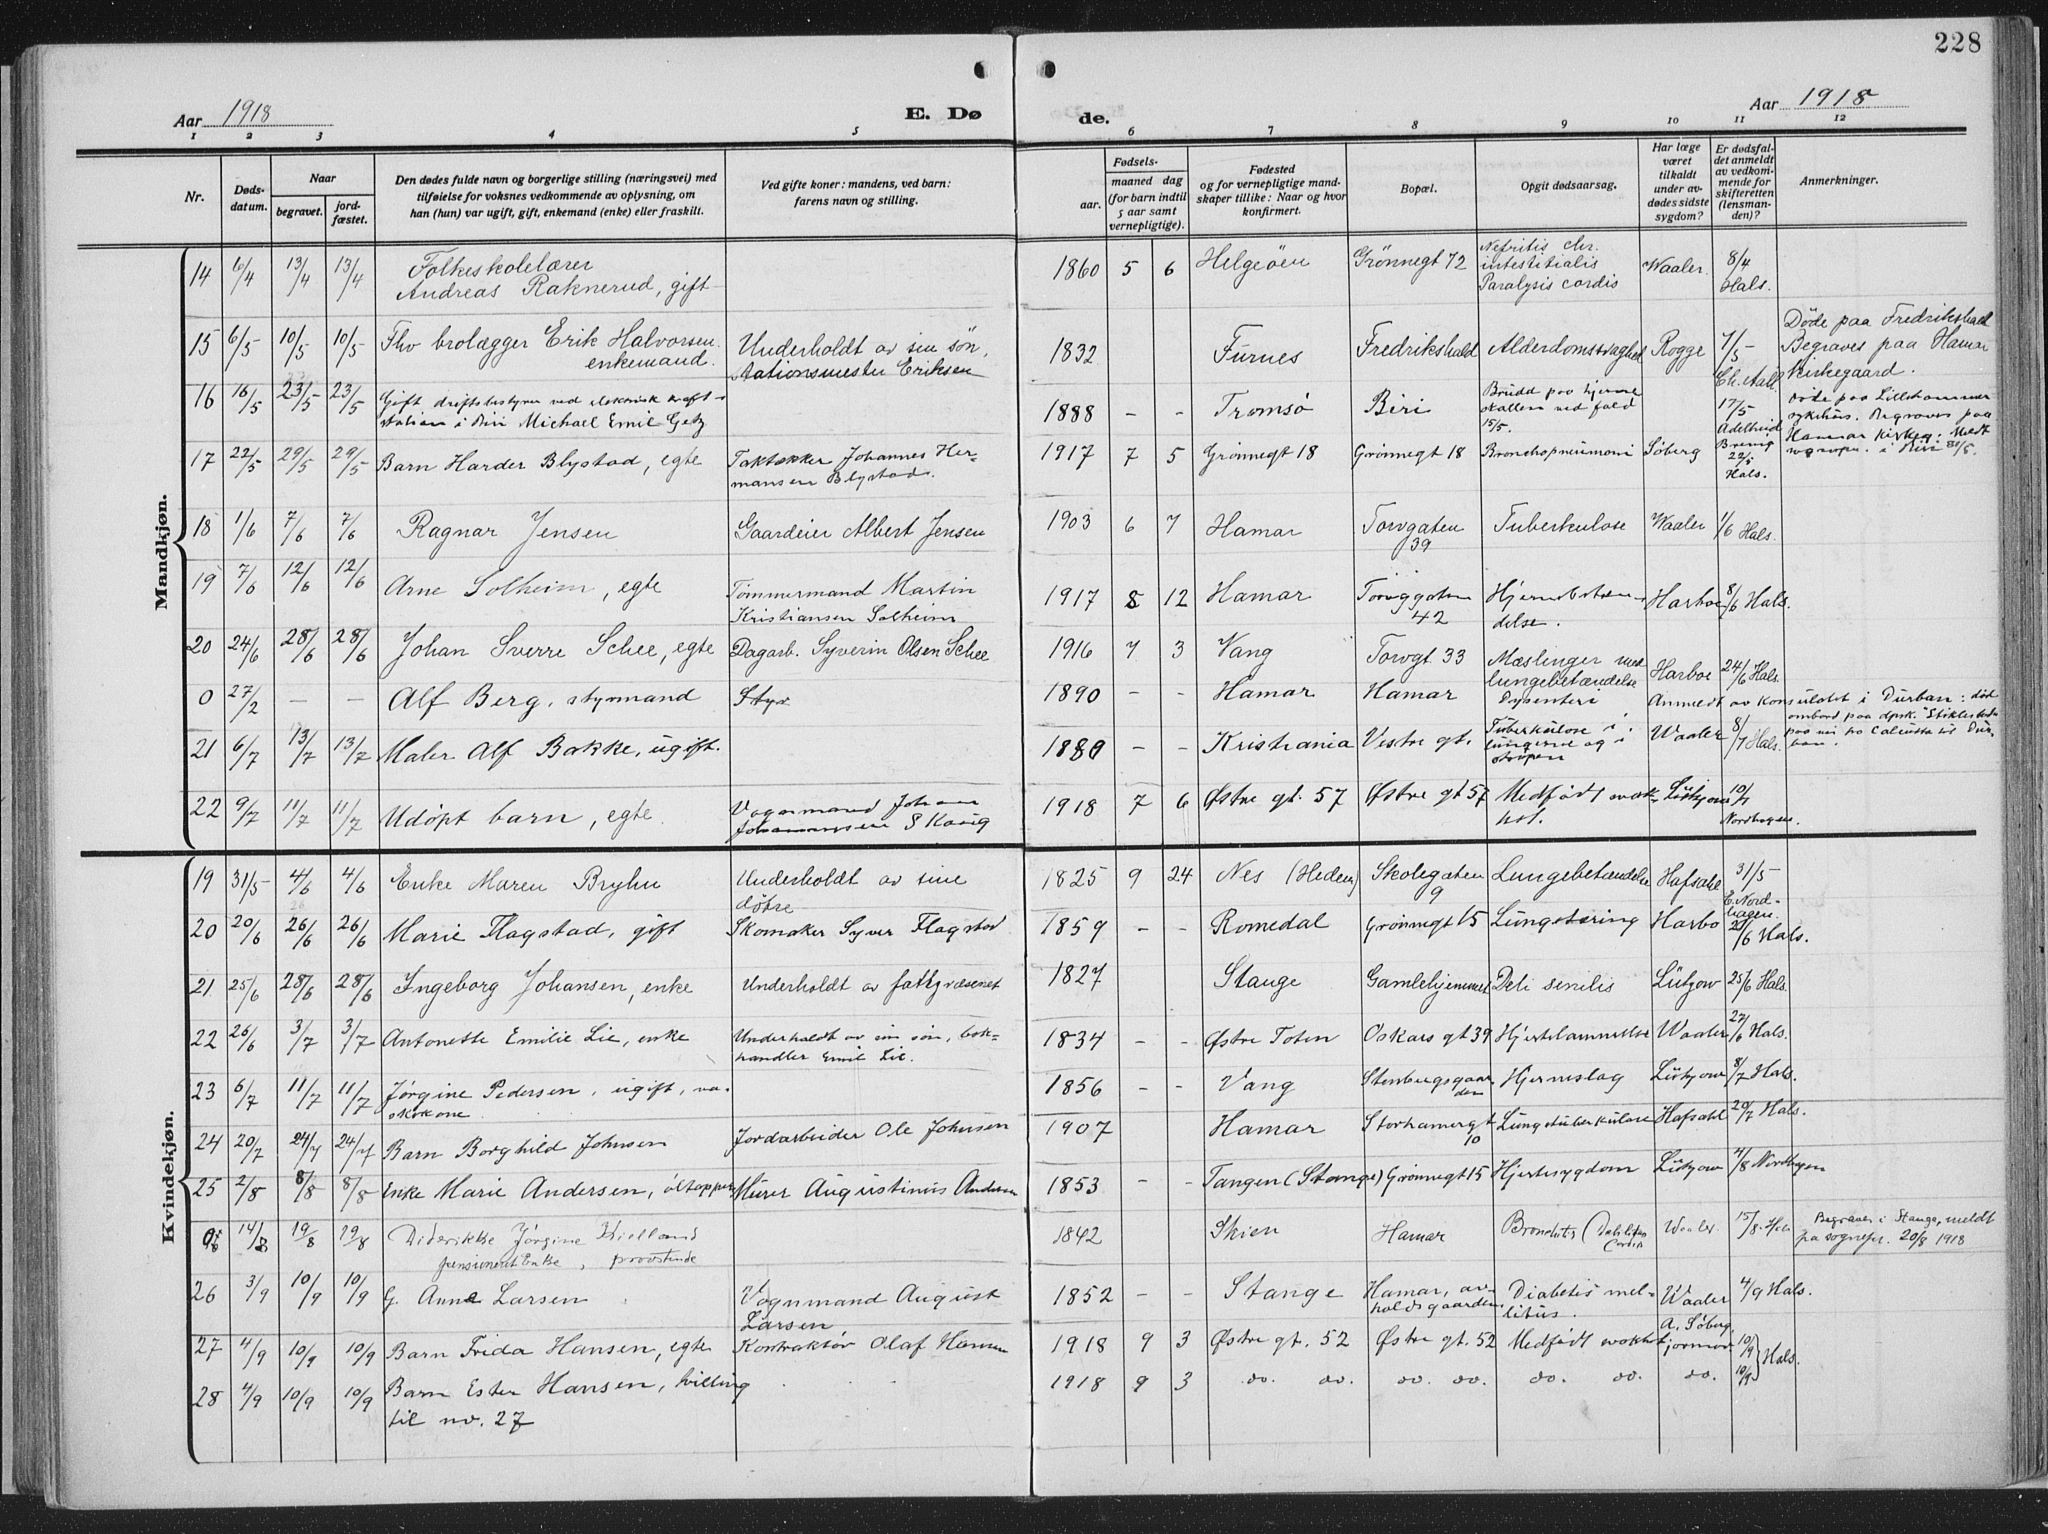 228
Aar 1918
E. Dø de.
Aar 1918
1 2 3 4 5 6 7 8 9 10 11 12
Nr.
Døds-datum.
Naar
begravet.
jord-fæstet.
Den dødes fulde navn og borgerlige stilling (næringsvei) med
tilføielse for voksnes vedkommende av oplysning, om
han (hun) var ugift, gift, enkemand (enke) eller fraskilt.
Ved gifte koner: mandens, ved barn:
farens navn og stilling.
Fødsels-
aar.
maaned dag
(for barn indtil
5 aar samt
vernepligtige).
Fødested
og for vernepligtige mand-
skaper tillike: Naar og hvor
konfirmert.
Bopæl.
Opgit dødsaarsag.
Har læge
været
tilkaldt
under av-
dødes sidste
sygdom?
Er dødsfal-
det anmeldt
av vedkom-
mende for
skifteretten
(lensman-
den)?
Anmerkninger.
Mandkjøn.
14 6/4 13/4 13/4 Folkeskolelærer Andreas Raknerud, gift 1860 5 6 Helgeøen Grønnegt 72 Nefritis chr. intestitialis Paralysis cordis Waaler. 8/4 Hals.
15 6/5 10/5 10/5 Fhv brolægger Erik Halvorsen. enkemand. Underholdt av sin søn, stationsmester Eriksen 1832 Furnes Fredrikshald Alderdomssvaghed Rogge 7/5 Døde paa Fredrikshald Begraves paa Hamar kirkegaard.
16 16/5 23/5 23/5 Gift driftsbestyrer ved elektrisk kraft-station i Biri Michael Emil Getz 1888 - - Tromsø Biri Brudd paa hjerneskallen ved fald 15/5. 17/5 Adelheid Brevig Døde paa Lillehammer sykehus. Begraves paa Hamar kirkeg.
17 22/5 29/5 29/5 Barn Harder Blystad, egte Taktækker Johannes Hermansen Blystad. 1917 7 5 Grønnegt 18 Grønnegt 18 Bronchopneumoni Søberg 22/5 Hals.
18 1/6 7/6 7/6 Ragnar Jensen Gaardeier Albert Jensen 1903 6 7 Hamar Torvgaten 39 Tuberkulose Waaler 1/6 Hals.
19 7/6 12/6 12/6 Arne Solheim, egte Tømmermand Martin Kristiansen Solheim 1917 8 12 Hamar Torvggaten 42 Hjernebetændelse. Harboe 8/6 Hals.
20 24/6 28/6 28/6 Johan Sverre Schee, egte Dagarb. Syverin Olsen Schee 1916 7 3 Vang Torvgt. 33 Mæslinger med lungebetændelse Harboe 24/6 Hals.
0 27/2 - - Alf Berg, styrmand Styr 1890 - - Hamar Hamar Dysenteri Anmeldt av konsulatet i Durban: død ombord paa dpsk. "Stiklestad" paa vei fra Calcutta til Durban.
21 6/7 13/7 13/7 Maler Alf Bakke, ugift. 1880 - - Kristiania Vestre gt. Tuberkulose i lungerne og i strupen Waaler 8/7 Hals.
22 9/7 11/7 11/7 Udøpt barn, egte. Vognmand Johan Johannesen Skavig 1918 7 6 Østre gt. 57 Østre gt 57 Medfødt svakhet. Lützow 10/7 Nordhagen.
Kvindekjøn.
19 31/5 4/6 4/6 Enke Maren Bryhn Underholdt av sine døtre 1825 9 24 Nes (Hedem) Skolegaten 9 Lungebetændelse Hafsahl 31/5 E. Nordhagen.
20 20/6 26/6 26/6 Marie Flagstad, gift Skomaker Syver Flagstad 1859 - - Romedal Grønnegt 15 Lungetæring Harbo /6 Hals.
21 25/6 28/6 28/6 Ingeborg Johansen, enke Underholdt av fattigvæsenet 1827 Stange Gamlehjemmet Deli senilis Lützow 25/6 Hals.
22 26/6 3/7 3/7 Antonette Emilie Lie, enke Underholdt av sin søn, bokhandler Emil Lie. 1834 - - Østre Toten Oskars gt 39 Hjertelammelse Waaler 27/6 Hals.
23 6/7 11/7 11/7 Jørgine Pedersen, ugift, vaskekone. 1856 - - Vang Stenbergsgaarden Hjerneslag Lützow 8/7 Hals.
24 20/7 24/7 24/7 Barn Borghild Johnsen Jordarbeider Ole Johnsen 1907 Hamar Storhamergt 10 Lungetuberkulose Hafsahl 20/7 Hals.
25 2/8 8/8 8/8 Enke Marie Andersen, øltapper Murer Augustinus Andersen 1853 - - Tangen (Stange) Grønnegt 15 Hjertesygdom Lützow 4/8 Nordhagen
0 14/8 19/8 19/8 Diderikke Jørgine Kielland pensioneret Enke, provstinde 1842 Skien Hamar Bronchitis (Debilitas Cordis Waaler 15/8 Hals Begraves i Stange, meldt pa sognepr. 20/8 1918
26 3/9 10/9 10/9 G. Anne Larsen Vognmand August Larsen 1852 - - Stange Hamar, avholdsgaarden Diabetis mellitus. Waaler 4/9 Hals.
27 4/9 10/9 10/9 Barn Frida Hansen, egte Kontraktør Olaf Hansen 1918 9 3 Østre gt. 52 Østre gt. 52 Medfødt svakhet A. Søberg, jormor 10/9 Hals.
28 4/9 10/9 10/9 Barn Ester Hansen, tvilling til no. 27 1918 9 3 do. do. do. do. do. do. do. 10/9